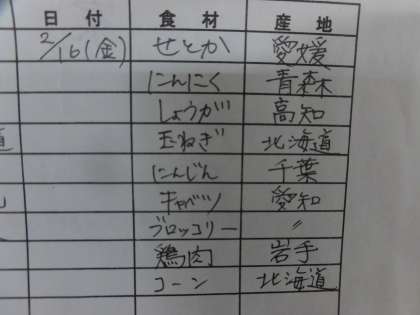 日付 食材 産地
2/16(金) せとか 愛媛
にんにく 青森
しょうが 高知
道 玉ねぎ 北海道
にんじん 千葉
キャベツ 愛知
ブロッコリー 〃
鶏肉 岩手
コーン 北海道